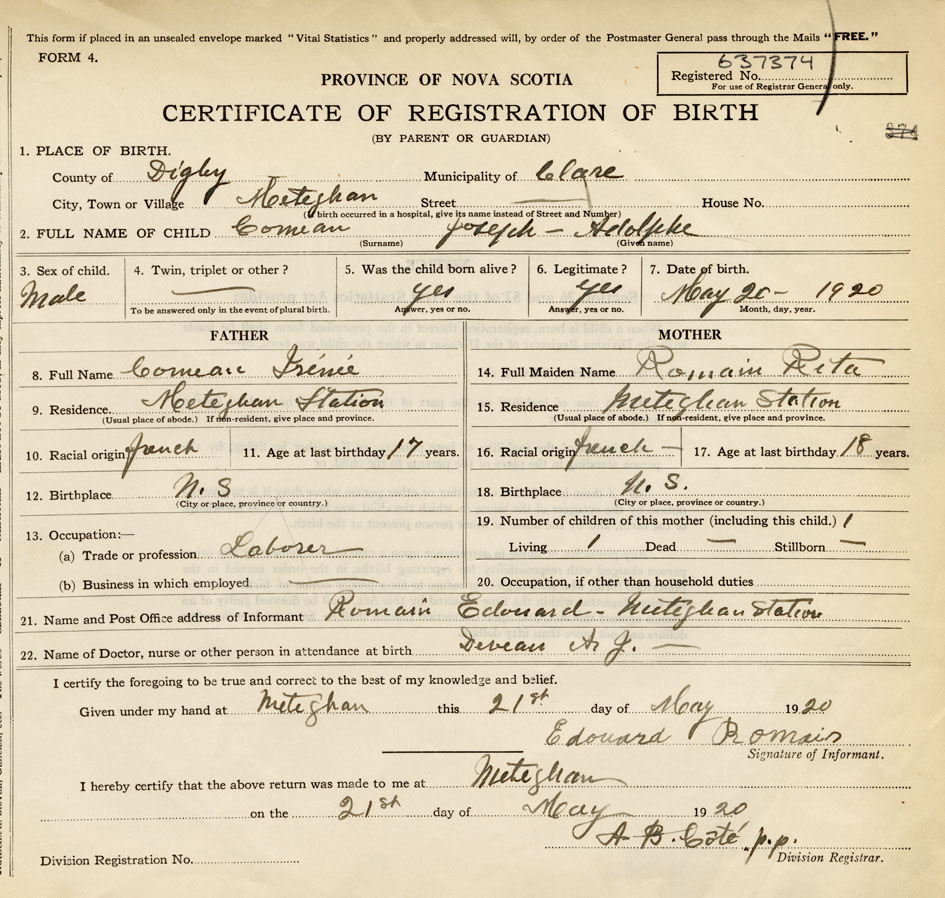 This form if placed in an unsealed envelope marked "Vital Statistics" and properly addressed will, by order of the Postmaster General pass through the Mails "FREE."
FORM 4.
637374
Registered No.
For use of Registrar General only.
PROVINCE OF NOVA SCOTIA
CERTIFICATE OF REGISTRATION OF BIRTH
(BY PARENT OR GUARDIAN)
1. PLACE OF BIRTH.
County of Digby Municipality of Clare
City, Town or Village Meteghan Street House No.
(If birth occurred in a hospital, give its name instead of Street and Number)
2. FULL NAME OF CHILD Comeau Joseph - Adolphe
(Surname) (Given name)
3. Sex of child. 4. Twin, triplet or other? 5. Was the child born alive? 6. Legitimate? 7. Date of birth.
Male — yes yes May 20 - 1920
To be answered only in the event of plural birth. Answer, yes or no. Answer, yes or no. Month, day, year.
FATHER MOTHER
8. Full Name Comeau Irénée 14. Full Maiden Name Romain Rita
9. Residence. Meteghan Station 15. Residence Meteghan Station
(Usual place of abode.) If non-resident, give place and province. (Usual place of abode.) If non-resident, give place and province.
10. Racial origin french 11. Age at last birthday 17 years. 16. Racial origin french - 17. Age at last birthday 18 years.
12. Birthplace N. S 18. Birthplace N. S.
(City or place, province or country.) (City or place, province or country.)
13. Occupation:— 19. Number of children of this mother (including this child.) 1
(a) Trade or profession Laborer Living 1 Dead — Stillborn —
(b) Business in which employed — 20. Occupation, if other than household duties
21. Name and Post Office address of Informant Romain Edouard - Meteghan Station
22. Name of Doctor, nurse or other person in attendance at birth Deveau A. J. —
I certify the foregoing to be true and correct to the best of my knowledge and belief.
Given under my hand at Meteghan this 21st day of May 1920
Edouard Romain
Signature of Informant.
I hereby certify that the above return was made to me at Meteghan
on the 21st day of May 1920
A. B. Coté, p.p.
Division Registration No. Division Registrar.